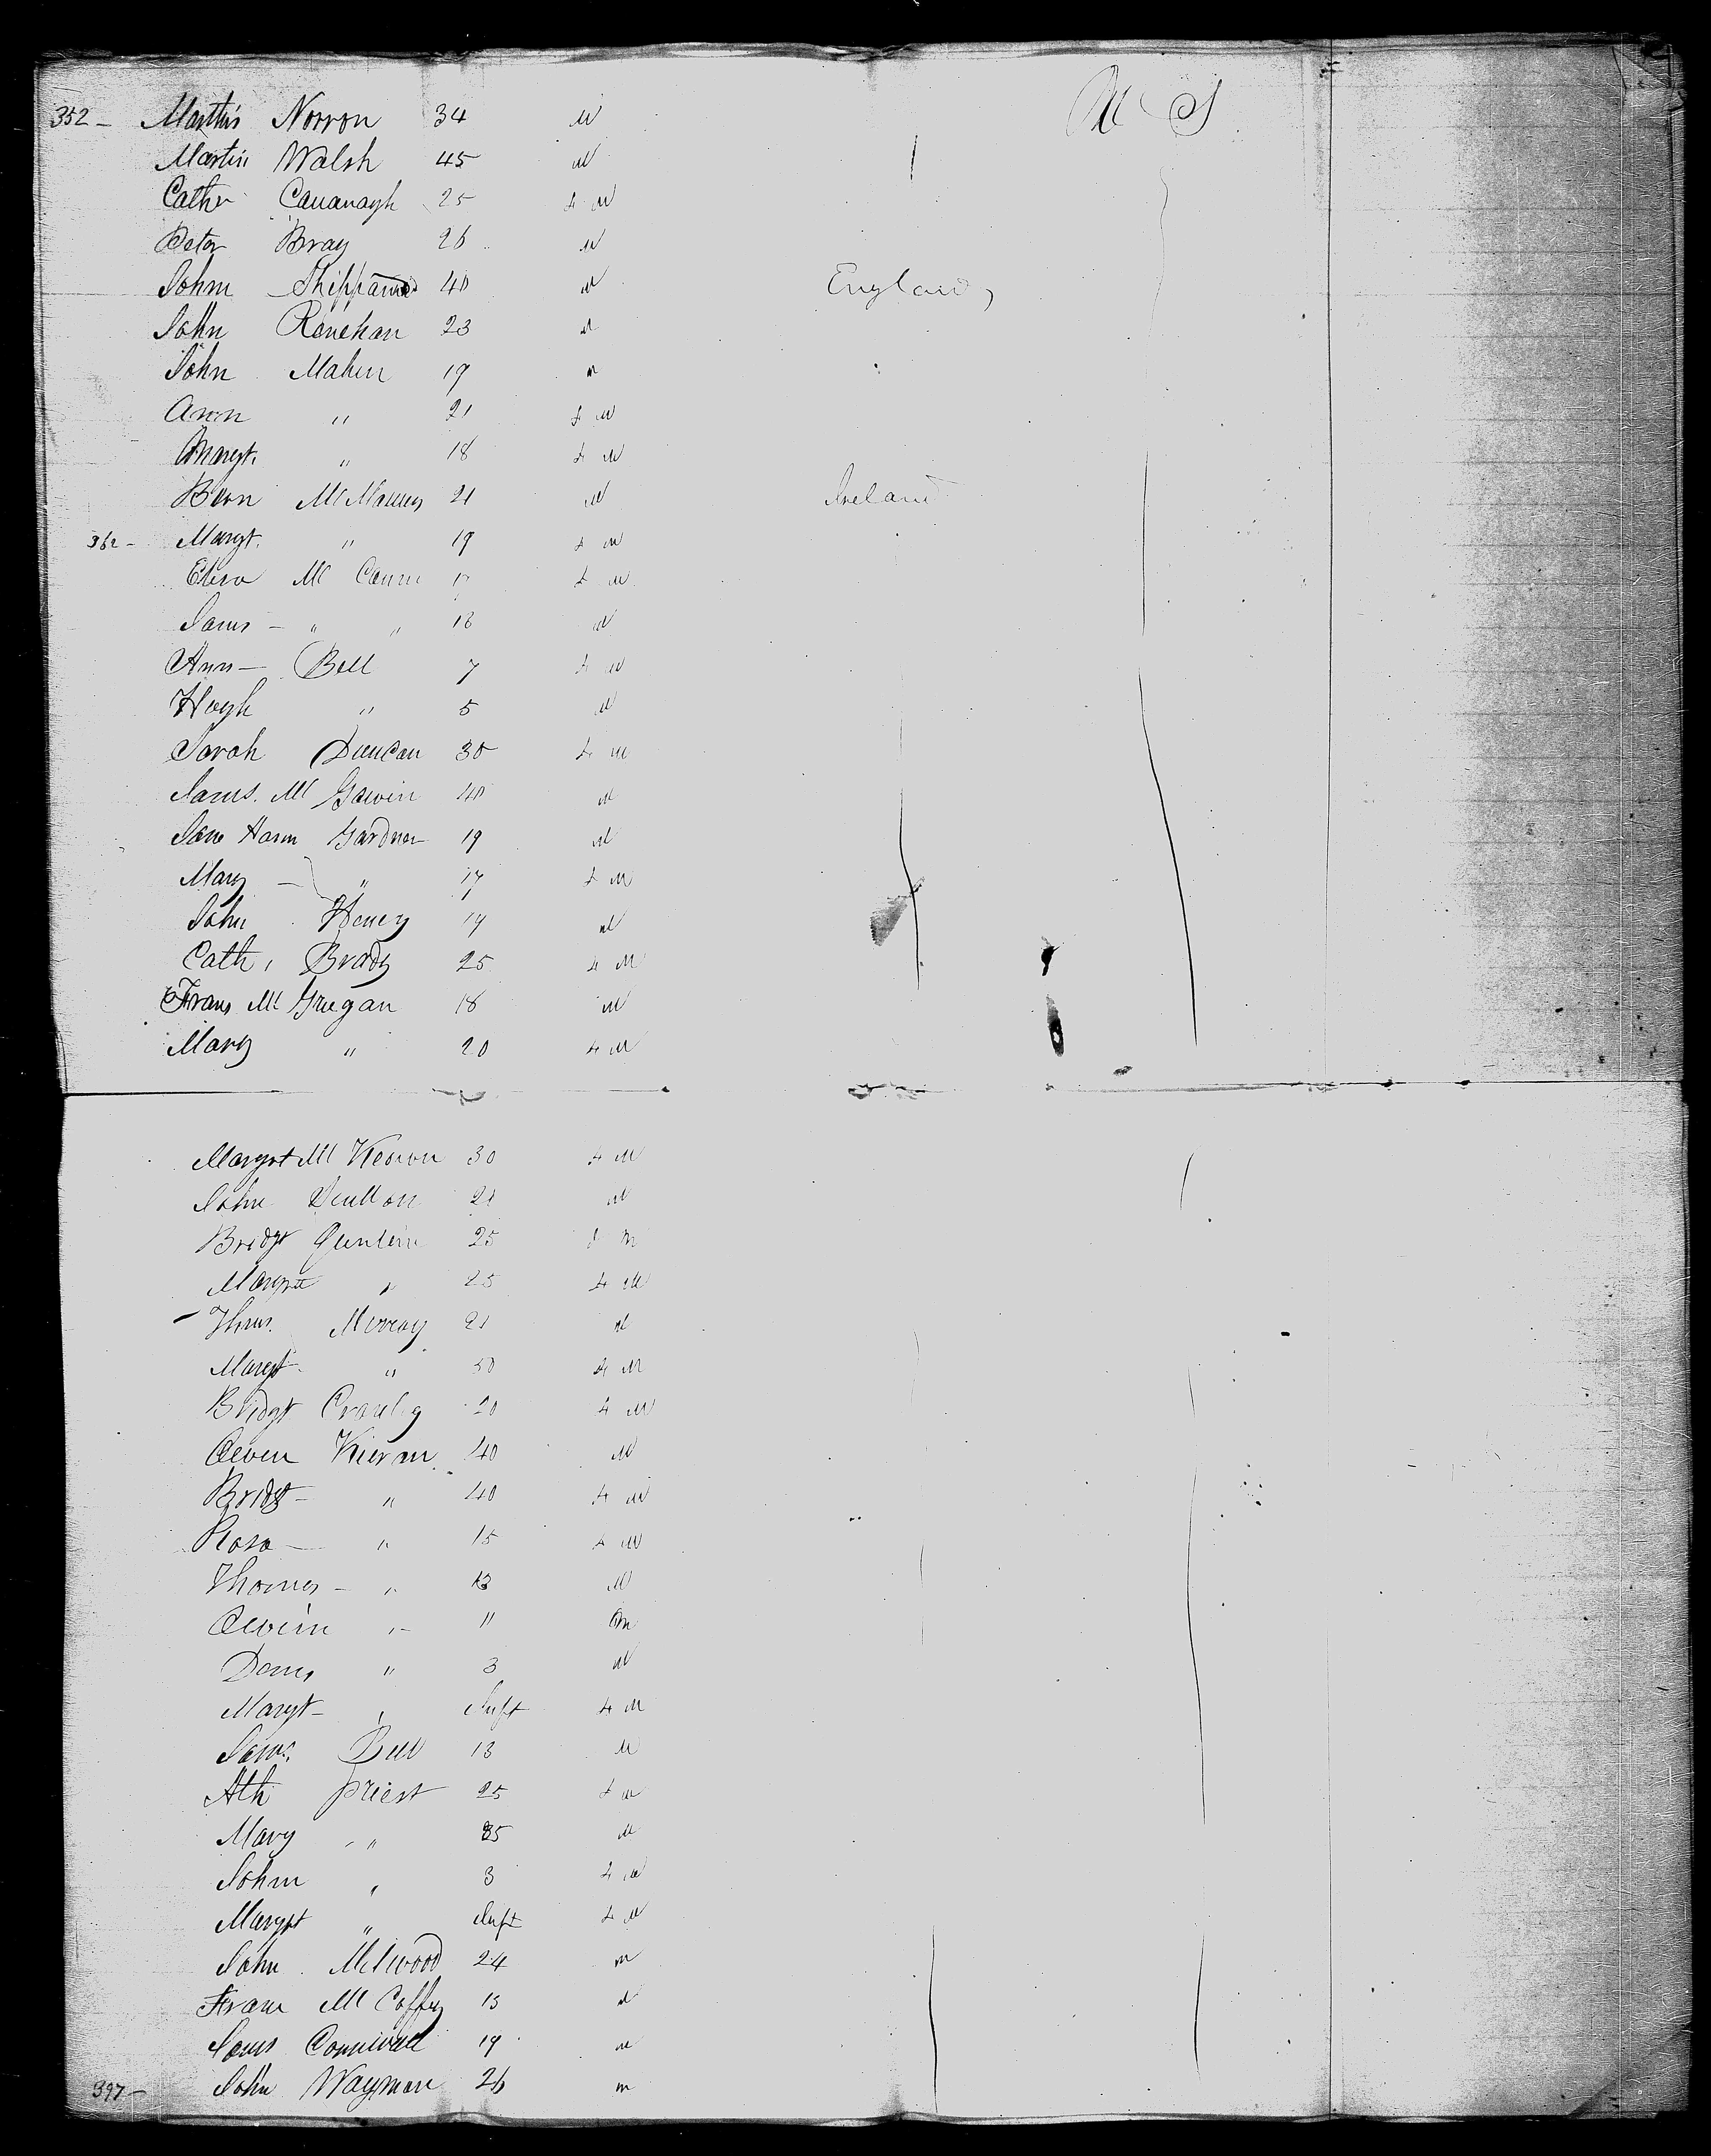 352 - Matthis Norron 34 M U S
Martin Walsh 45 M
Cathr Cavanagh 25 f M
Peter Bray 26 M
John 40 M England
John Renehan 23 M
John Maher 19 M
Ann " 21 f M
Margt. " 18 f M
Bern McManus 21 M Ireland
362 - Margt. " 19 f M
Eliza Mc Cann f M
James - " " 18 M
Ann - Bell 7 f M
Hugh " 5 M
Sarah Duncan 30 f M
James. Mc Gowin 40 M
Gardner 19 M
Mary - " 17 f M
John Henry 19 M
Cath, Brady 25 f M
Frans Mc Gregan 18 M
Mary " 20 f M
Margrt Mc Keown 30 f M
John 21 M
Bridgt Quinlin 25 f M
Margret " 25 f M
- Thms. Murray 21 M
Margt - " 50 f M
Bridgt Crawley 20 f M
Owen Kieran 40 M
Bridgt - " 40 f M
Rosa - " 15 f M
Thomas - " 13 M
Owen " 11 M
" 3 M
Margt - " Inft f M
James. Bell 13 M
Priest 25 f M
Mary " 35 M
John " 3 f M
Margrt " Inft f M
John Milwood 24 m
Fran Mc Caffry 13 M
James Cornwall 19 m
397 - John Wayman 26 m